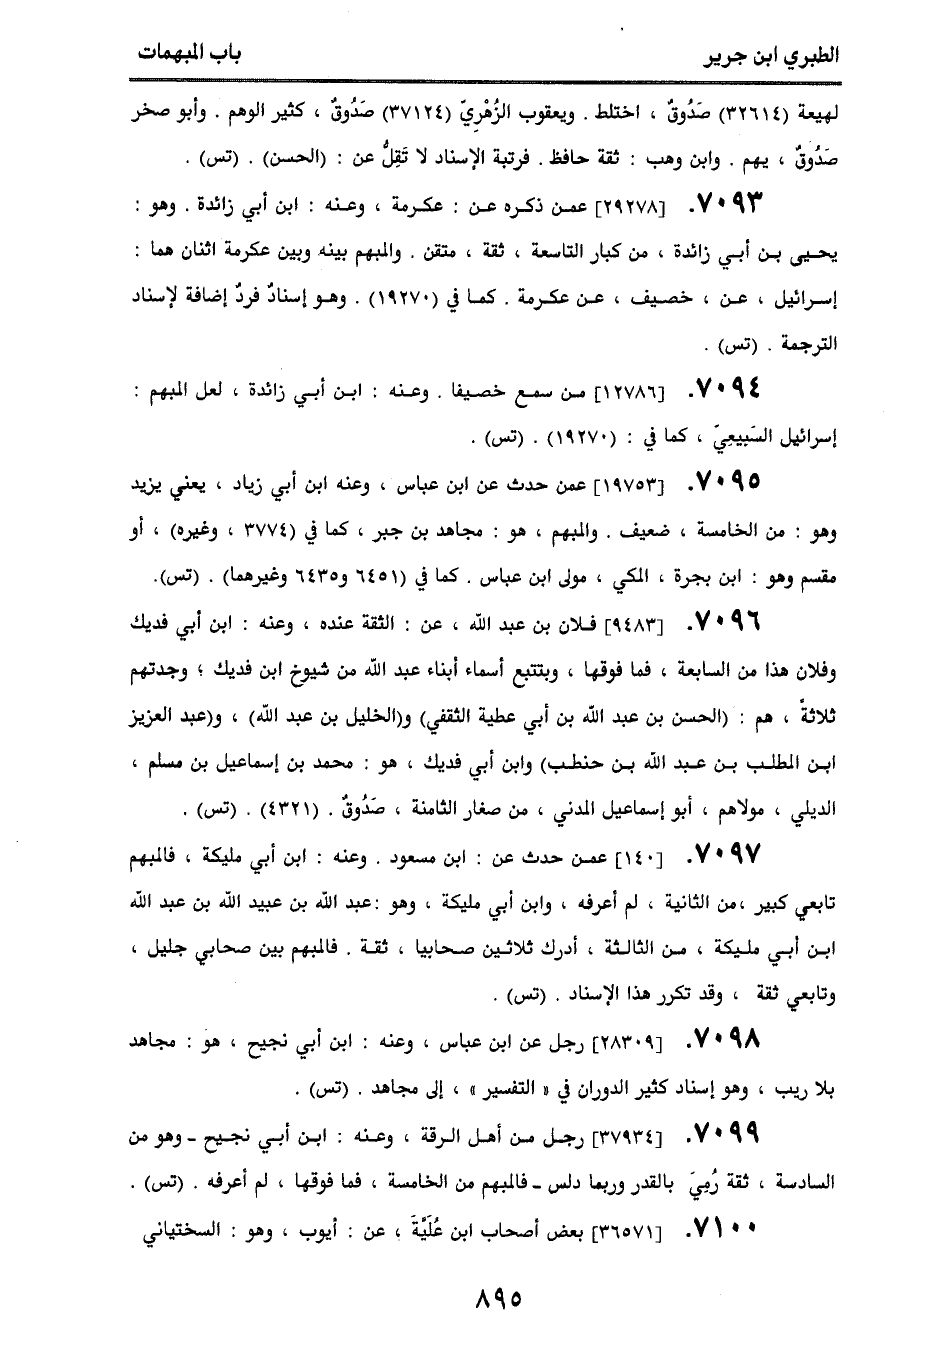 الطبري ابن جرير
باب المبهمات
لهيعة (٣٢٦١٤) صَدُوقٌ ، اختلط . ويعقوب الزُهْرِيّ (٣٧١٢٤) صَدُوقٌ ، كثير الوهم . وأبو صخر
صَدُوقٌ ، يهم . وابن وهب : ثقة حافظ . فرتبة الإسناد لا تَقِلُّ عن : (الحسن) . (تس) .
٧٠٩٣. [٢٩٢٧٨] عمـن ذكـره عـن : عكـرمة ، وعـنه : ابن أبي زائدة . وهو :
يحـيى بـن أبـي زائدة ، من كبار التاسعة ، ثقة ، متقن . والمبهم بينه وبين عكرمة اثنان هما :
إسـرائيل ، عـن ، خصـيف ، عـن عكـرمة . كمـا في (١٩٢٧٠) . وهـو إسنادٌ فردٌ إضافة لإسناد
الترجمة . (تس) .
٧٠٩٤. [١٢٧٨٦] مـن سمـع خصـيفا . وعـنه : ابـن أبـي زائدة ، لعل المبهم :
إسرائيل السَبِيعِيّ ، كما في : (١٩٢٧٠) . (تس) .
٧٠٩٥. [١٩٧٥٣] عمن حدث عن ابن عباس ، وعنه ابن أبي زياد ، يعني يزيد
وهو : من الخامسة ، ضعيف . والمبهم ، هو : مجاهد بن جبر ، كما في (٣٧٧٤ ، وغيره) ، أو
مقسم وهو : ابن بجرة ، المكي ، مولى ابن عباس . كما في (٦٤٥١ و٦٤٣٥ وغيرهما) . (تس).
٧٠٩٦. [٩٤٨٣] فـلان بن عبد الله ، عن : الثقة عنده ، وعنه : ابن أبي فديك
وفلان هذا من السابعة ، فما فوقها ، وبتتبع أسماء أبناء عبد الله من شيوخ ابن فديك ؛ وجدتهم
ثلاثةً ، هم : (الحسن بن عبد الله بن أبي عطية الثقفي) و(الخليل بن عبد الله) ، و(عبد العزيز
ابـن المطلـب بـن عـبد الله بـن حنطـب) وابن أبي فديك ، هو : محمد بن إسماعيل بن مسلم ،
الديلي ، مولاهم ، أبو إسماعيل المدني ، من صغار الثامنة ، صَدُوقٌ . (٤٣٢١) . (تس) .
٧٠٩٧. [١٤٠] عمـن حدث عن : ابن مسعود . وعنه : ابن أبي مليكة ، فالمبهم
تابعي كبير ،من الثانية ، لم أعرفه ، وابن أبي مليكة ، وهو :عبد الله بن عبيد الله بن عبد الله
ابـن أبـي ملـيكة ، مـن الثالـثة ، أدرك ثلاثـين صـحابيا ، ثقـة . فالمبهم بين صحابي جليل ،
وتابعي ثقة ، وقد تكرر هذا الإسناد . (تس) .
٧٠٩٨. [٢٨٣٠٩] رجل عن ابن عباس ، وعنه : ابن أبي نجيح ، هو : مجاهد
بلا ريب ، وهو إسناد كثير الدوران في « التفسير » ، إلى مجاهد . (تس) .
٧٠٩٩. [٣٧٩٣٤] رجـل مـن أهـل الـرقة ، وعـنه : ابـن أبـي نجـيح ـ وهو من
السادسة ، ثقة رُمِيَ بالقدر وربما دلس ـ فالمبهم من الخامسة ، فما فوقها ، لم أعرفه . (تس) .
٧١٠٠. [٣٦٥٧١] بعض أصحاب ابن عُلَيَّةَ ، عن : أيوب ، وهو : السختياني
٨٩٥